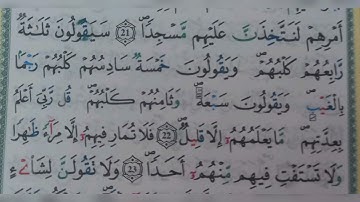 أَمْرِهِمْ لَنَتَّخِذَنَّ عَلَيْهِم مَّسْجِدًا ۝21 سَيَقُولُونَ ثَلَٰثَةٌ
رَّابِعُهُمْ كَلْبُهُمْ وَيَقُولُونَ خَمْسَةٌ سَادِسُهُمْ كَلْبُهُمْ رَجْمًا
بِالْغَيْبِ وَيَقُولُونَ سَبْعَةٌ وَثَامِنُهُمْ كَلْبُهُمْ قُل رَّبِّي أَعْلَمُ
بِعِدَّتِهِم مَّا يَعْلَمُهُمْ إِلَّا قَلِيلٌ ۝22 فَلَا تُمَارِ فِيهِمْ إِلَّا مِرَآءً ظَٰهِرًا
وَلَا تَسْتَفْتِ فِيهِم مِّنْهُمْ أَحَدًا ۝23 وَلَا تَقُولَنَّ لِشَاْيْءٍ